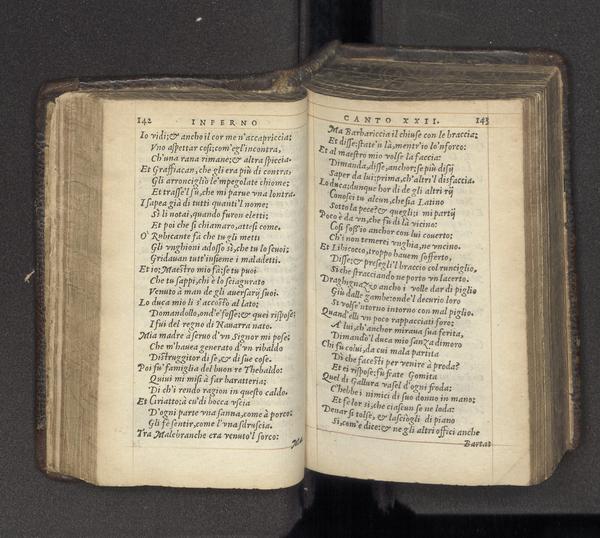 142 INFERNO
Io vidi;& ancho il cor me n'accapriccia;
Vno aspettar cosi; com'egl'incontra,
Ch'una rana rimane; & altra spiccia.
Et Graffiacan, che gli era più di contra,
Gli arroncigliò le'mpegolate chiome;
Et trasse'l sù, che mi parue vna lontra.
I sapea già di tutti quanti'l nome;
Sì li notai, quando furon eletti;
Et poi che si chiamaro, attesi come.
O' Rubicante fà che tu gli metti
Gli vnghioni adosso sì, che tu lo scuoi;
Gridauan tutt'insieme i maladetti.
Et io; Maestro mio fà; se tu puoi
Che tu sappi, chi è lo sciagurato
Venuto à man de gli auersarij suoi.
Lo duca mio li s'accostò al lato;
Domandollo, ond'e' fosse; & quei rispose;
I fui del regno di Nauarra nato.
Mia madre à seruo d'vn Signor mi pose;
Che m'hauea generato d'vn ribaldo
Distruggitor di se, & di sue cose.
Poi fu' famiglia del buon re Thebaldo:
Quiui mi misi à far baratteria;
Di ch'i rendo ragion in questo caldo.
Et Ciriatto; à cu' di bocca vscia
D'ogni parte vna sanna, come à porco;
Gli fè sentir, come l'vna sdruscia.
Tra Malebranche era venuto'l sorco:
Ma
CANTO XXII. 143
Ma Barbariccia il chiuse con le braccia;
Et disse; state'n là, mentr'io lo'nforco:
Et al maestro mio volse la faccia:
Dimanda, disse, anchor; se più disij
Saper da lui; prima, ch'altri'l disfaccia.
Lo duca; dunque hor di de gli altri rij
Conosci tu alcun, che sia Latino
Sotto la pece? & quegli; i mi partij
Poco è da vn, che fù di là vicino:
Così foss'io anchor con lui couerto;
Ch'i non temerei vnghia, ne vncino.
Et Libicocco, troppo hauem sofferto,
Disse: & presegli'l braccio col runciglio,
Sì che stracciando ne portò vn lacerto.
Draghignazzo anch'ei volle dar di piglio
Giù dalle gambe: onde'l decurio loro
Si volse'ntorno intorno con mal piglio.
Quand'elli vn poco rappacciati foro;
A' lui, ch'anchor miraua sua ferita,
Dimandò'l duca mio sanza dimoro
Chi fù colui, da cui mala partita
Di che facesti per venire à proda?
Et ei rispose; fù frate Gomita
Quel di Gallura vasel d'ogni froda;
C'hebbe i nimici di suo donno in mano;
Et fè lor sì, che ciascun se ne loda:
Denar si tolse, & lasciogli di piano
Sì, com'e dice: & ne gli altri offici anche
Barrat